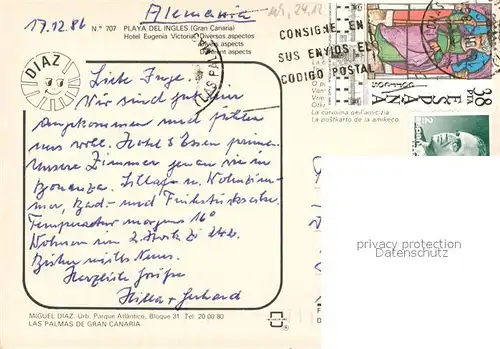 17.12.86
Alemania
N.º 707 PLAYA DEL INGLES (Gran Canaria)
Hotel Eugenia Victoria. Diversos aspectos
aspects
Different aspects
DIAZ
CONSIGNE EN
SUS ENVIOS EL
CODIGO POSTAL
LAS PALMAS
38 PTA
ESPAÑA
La carolina dell'amicizia
La poŝtkarto de la amikeco
Liebe Inge.
Wir sind gut hier
angekommen und fühlen
uns wohl. Hotel & Essen prima.
Unsere Zimmer genau wie in
Bonanza. Schlafz. u. Wohnzim-
mer, Bad- und Frühstücksecke.
Temperatur morgens 16°
Wohnen im 2. Stock Zi
Bisher nichts Neues.
Herzliche Grüße
Hilla + Gerhard
privacy protection
Datenschutz
MIGUEL DIAZ. Urb. Parque Atlántico, Bloque 31 Tel. 20 00 80
LAS PALMAS DE GRAN CANARIA